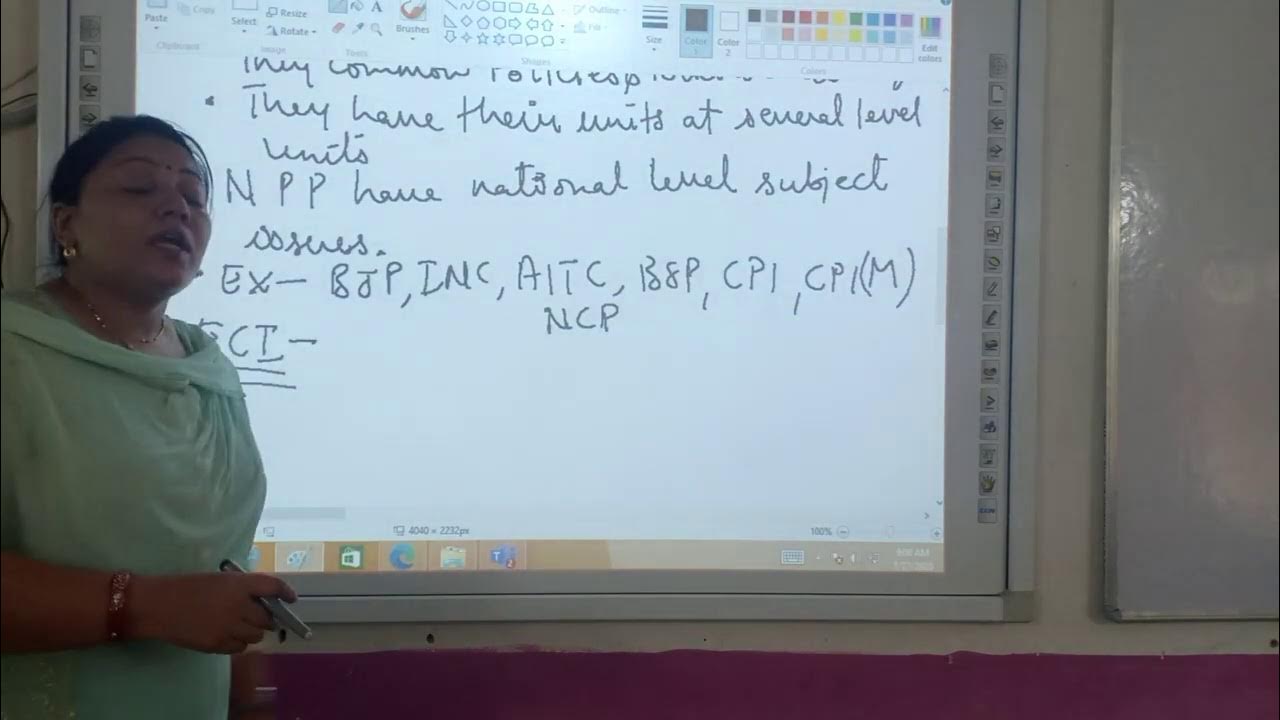 Paste
Copy
Clipboard
Select
Resize
Rotate
Image
Tools
Brushes
Shapes
Outline
Fill
Size
Color 1
Color 2
Edit colors
Colors
They common
They have their units at several level
units
NPP have national level subject
issues.
EX- BJP, INC, AITC, BSP, CPI, CPI(M)
NCP
ECI-
4040 × 2232px
100%
9:00 AM